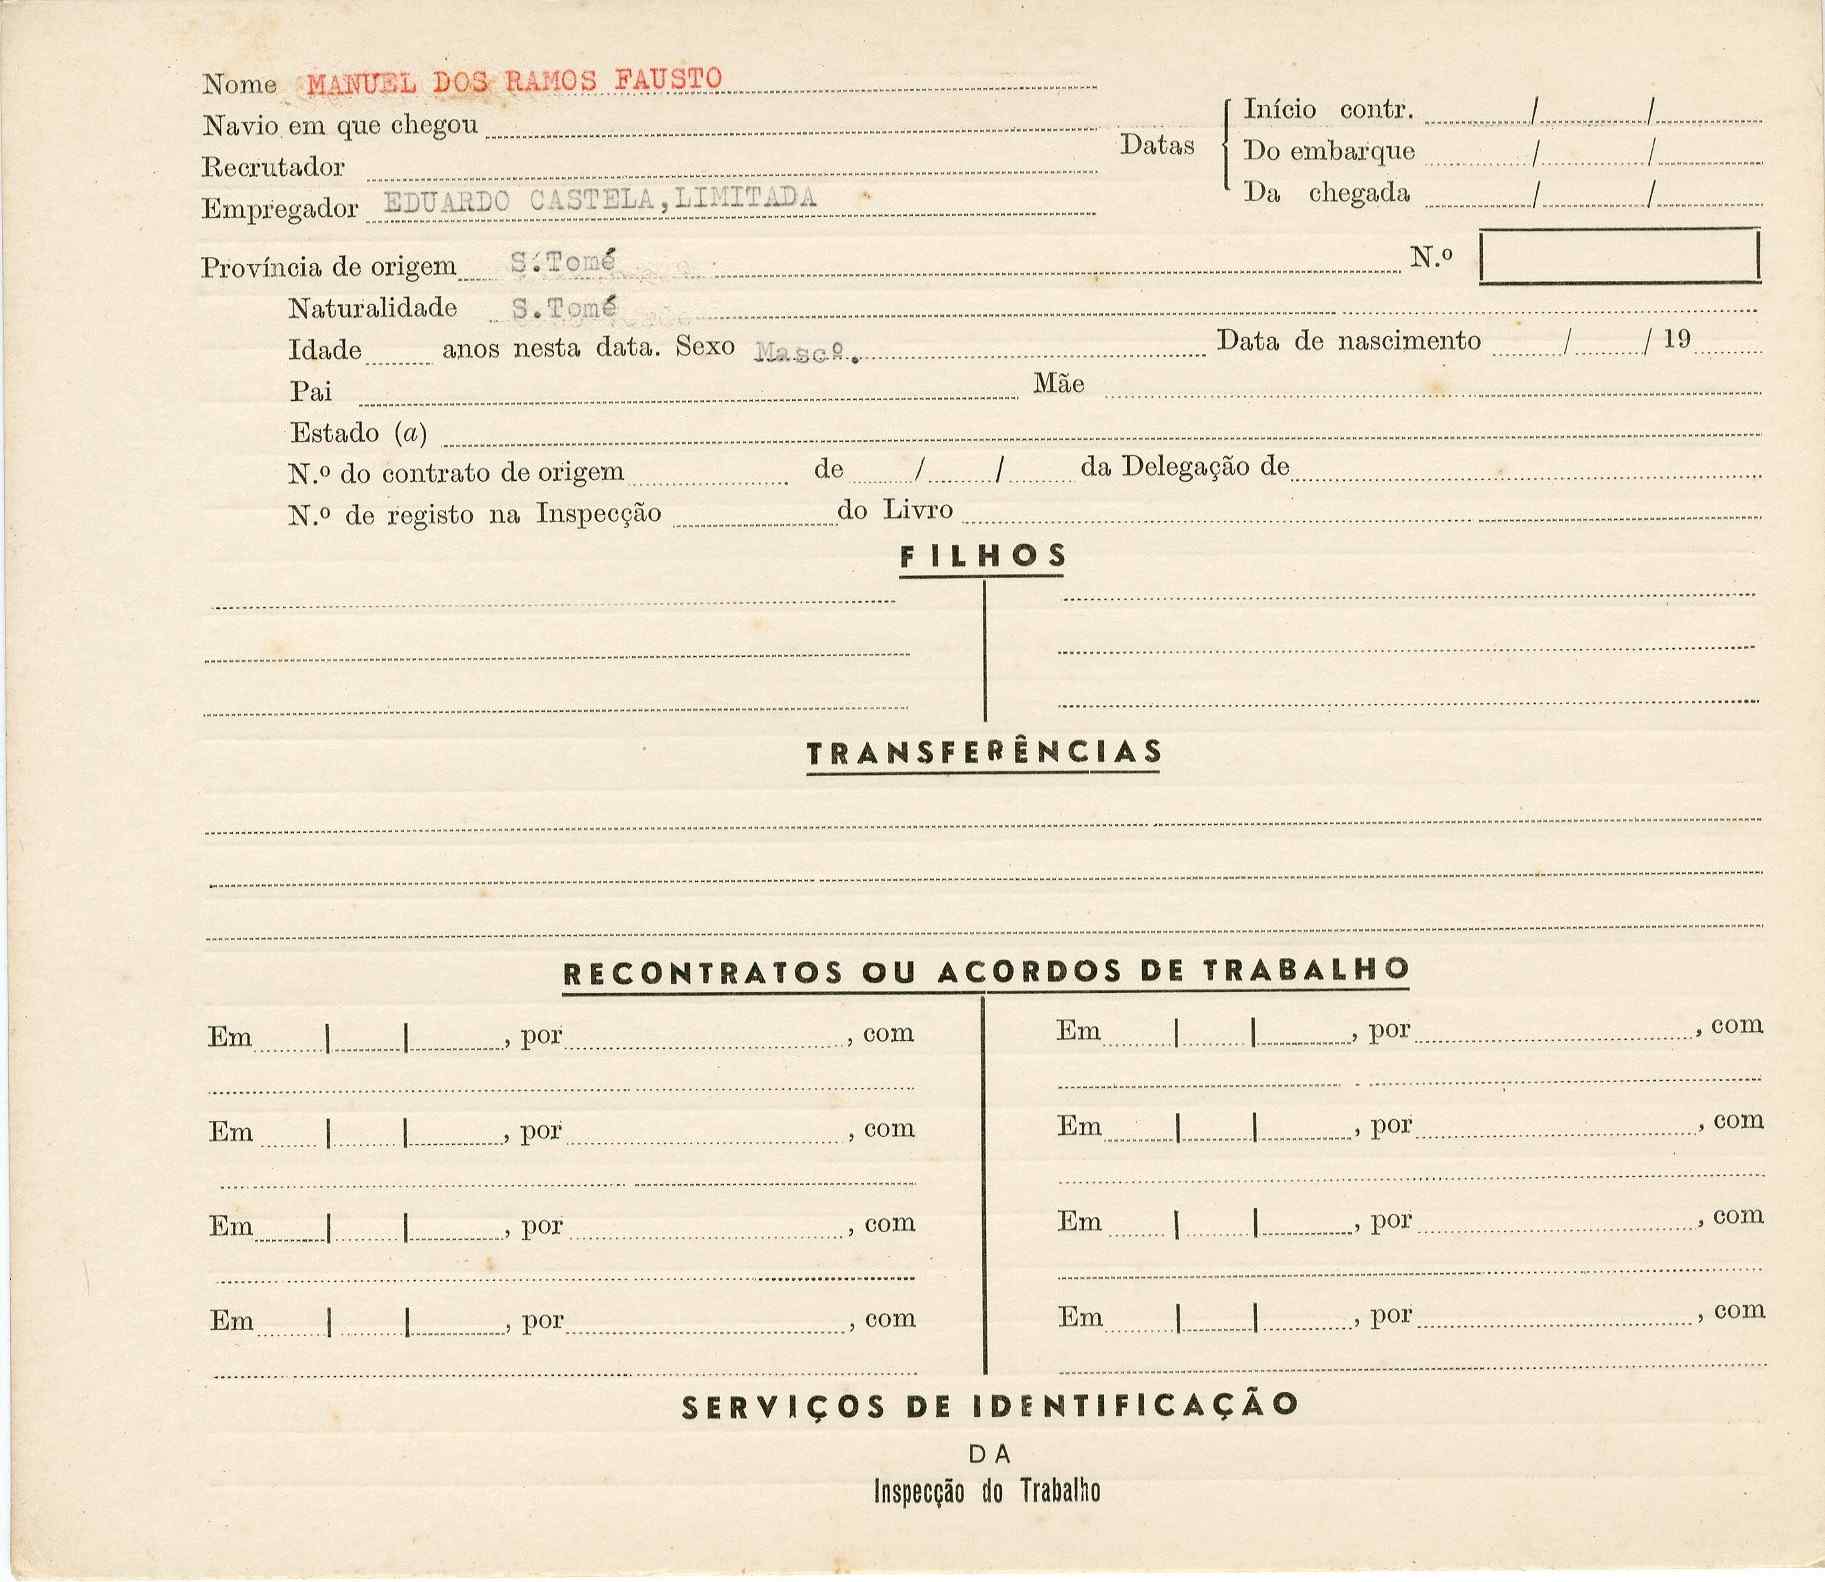 Nome MANUEL DOS RAMOS FAUSTO
Navio em que chegou
Recrutador
Empregador EDUARDO CASTELA,LIMITADA
Datas
Início contr. / /
Do embarque / /
Da chegada / /
Província de origem S.Tomé N.º
Naturalidade S.Tomé
Idade anos nesta data. Sexo Mascº. Data de nascimento / / 19
Pai Mãe
Estado (a)
N.º do contrato de origem de / / da Delegação de
N.º de registo na Inspecção do Livro
FILHOS
TRANSFERÊNCIAS
RECONTRATOS OU ACORDOS DE TRABALHO
Em | | , por , com Em | | , por , com
Em | | , por , com Em | | , por , com
Em | | , por , com Em | | , por , com
Em | | , por , com Em | | , por , com
SERVIÇOS DE IDENTIFICAÇÃO
DA
Inspecção do Trabalho